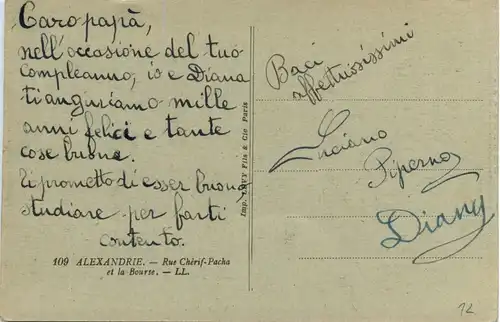 Caro papà,
nell'occasione del tuo
compleanno, io e Diana
ti auguriamo mille
anni felici e tante
cose buone.
Ti prometto di esser buono,
studiare per farti
contento.
109 ALEXANDRIE. — Rue Chérif-Pacha
et la Bourse. — LL.
Imp. LEVY Fils & Cie Paris
Baci
affettuosissimi
Luciano
Piperno
Diany
12